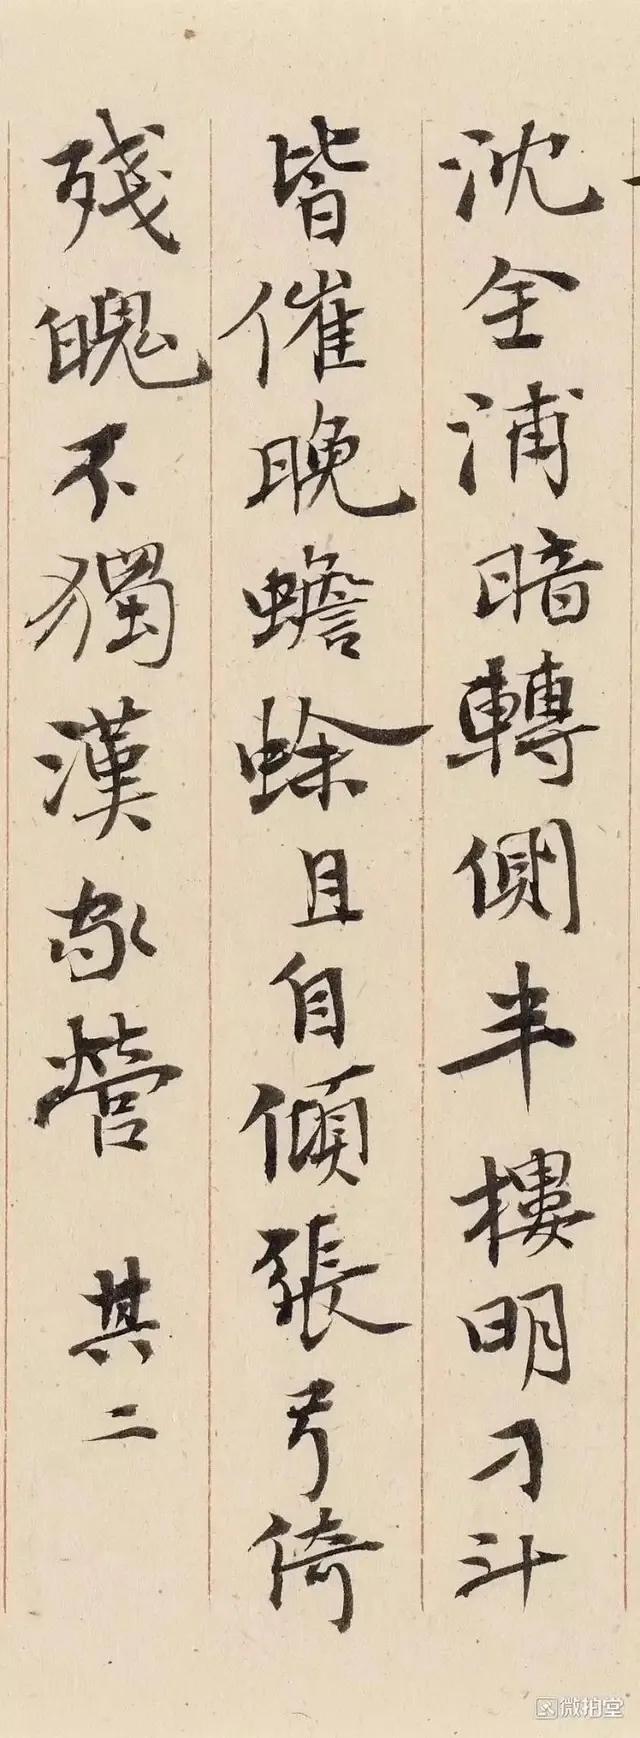 沈全浦暗轉側半樓明刁斗
皆催曉蟾蜍且自傾張弓倚
殘魄不獨漢家營 其二
微拍堂